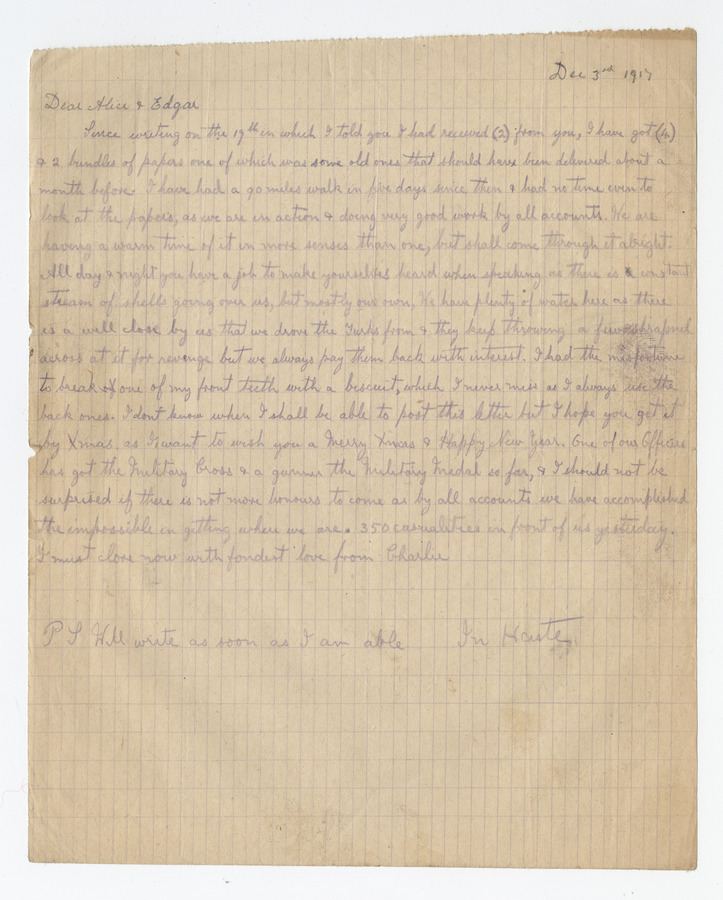 Dec 3rd 1917
Dear Alice & Edgar
Since writing on the 19th in which I told you I had received (2) from you, I have got (4)
& 2 bundles of papers one of which was some old ones that should have been delivered about a
month before. I have had a 90 miles walk in five days since then & had no time even to
look at the papers, as we are in action & doing very good work by all accounts. We are
having a warm time of it in more senses than one, but shall come through it alright.
All day & night you have a job to make yourselves heard when speaking as there is a constant
stream of shells going over us, but mostly our own. We have plenty of water here as there
is a well close by us that we drove the Turks from & they keep throwing a few shrapnel
across at it for revenge but we always pay them back with interest. I had the misfortune
to break off one of my front teeth with a biscuit, which I never miss as I always use the
back ones. I dont know when I shall be able to post this letter but I hope you get it
by Xmas. as I want to wish you a Merry Xmas & Happy New Year. One of our Officers
has got the Military Cross & a gunner the Military Medal so far, & I should not be
surprised if there is not more honours to come as by all accounts we have accomplished
the impossible in getting where we are. 350 casualities in front of us yesterday.
I must close now with fondest love from Charlie
P S Will write as soon as I am able In Haste